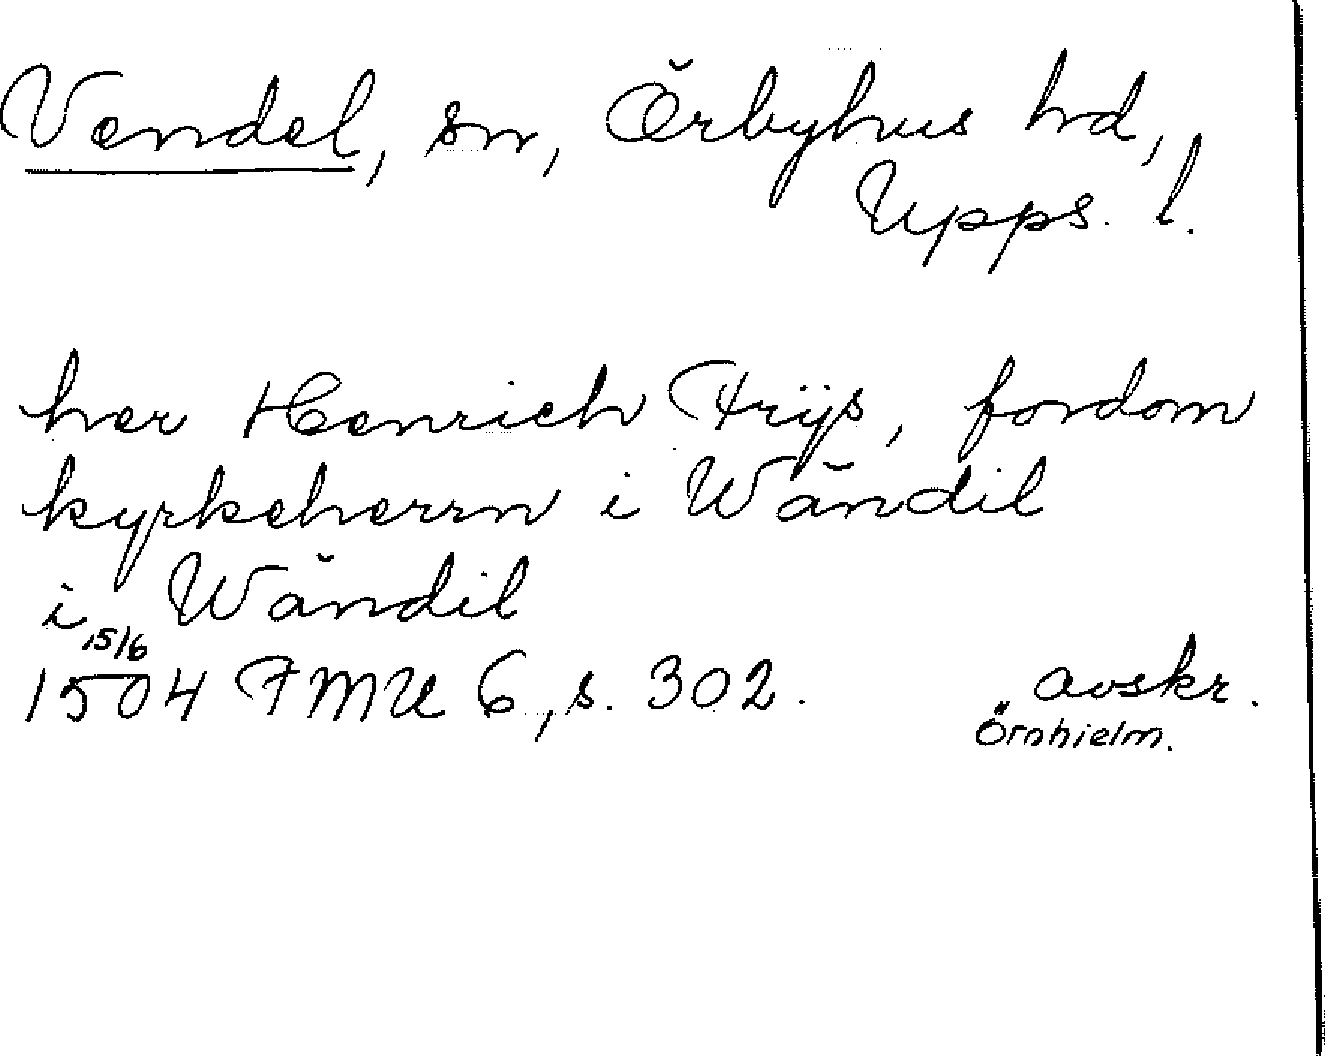 Vendel, sn, Örbyhus hd,
Upps. l.
her Henrich Frijs, fordom
kyrkeherrn i Wändil
i Wändil
15/6
1504 FMU 6, s. 302. avskr.
Örnhielm.